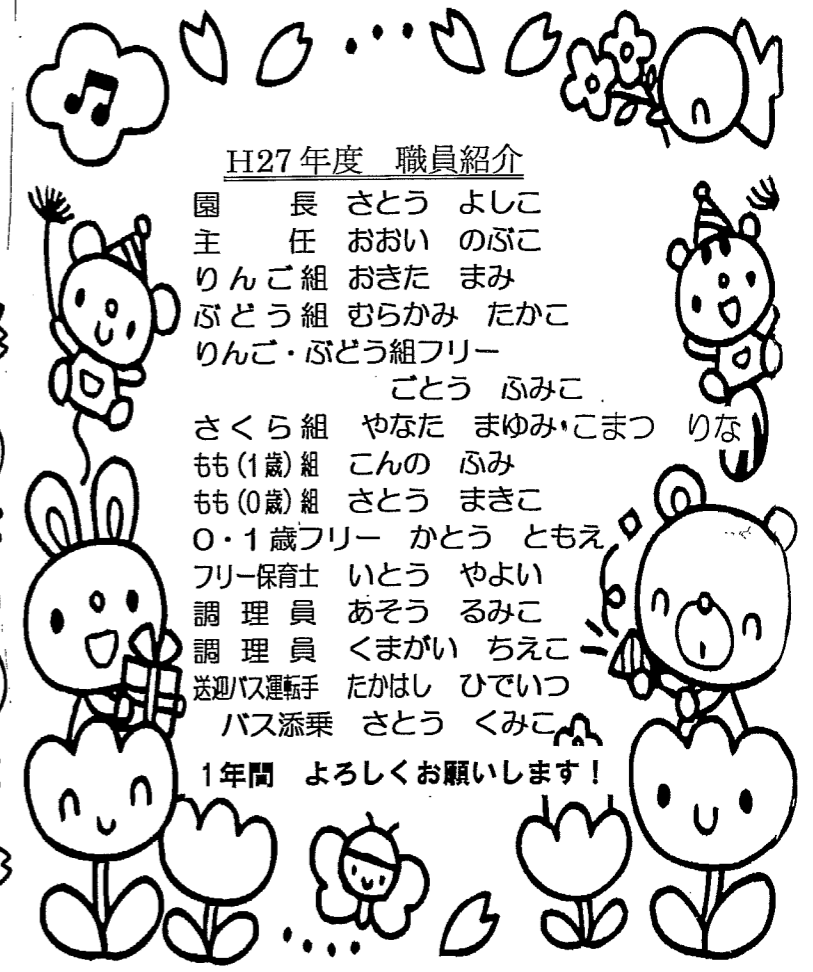 H27年度　職員紹介
園　　長　さとう　よしこ
主　　任　おおい　のぶこ
りんご組　おきた　まみ
ぶどう組　むらかみ　たかこ
りんご・ぶどう組フリー
ごとう　ふみこ
さくら組　やなた　まゆみ・こまつ　りな
もも(1歳)組　こんの　ふみ
もも(0歳)組　さとう　まきこ
0・1歳フリー　かとう　ともえ
フリー保育士　いとう　やよい
調理員　あそう　るみこ
調理員　くまがい　ちえこ
送迎バス運転手　たかはし　ひでいつ
バス添乗　さとう　くみこ
1年間　よろしくお願いします！